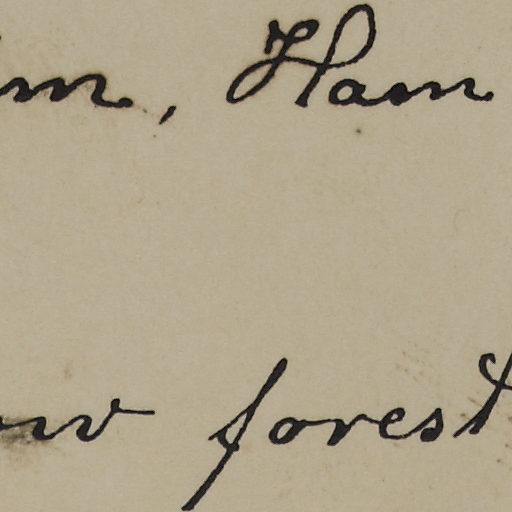 m, Ham
w forest